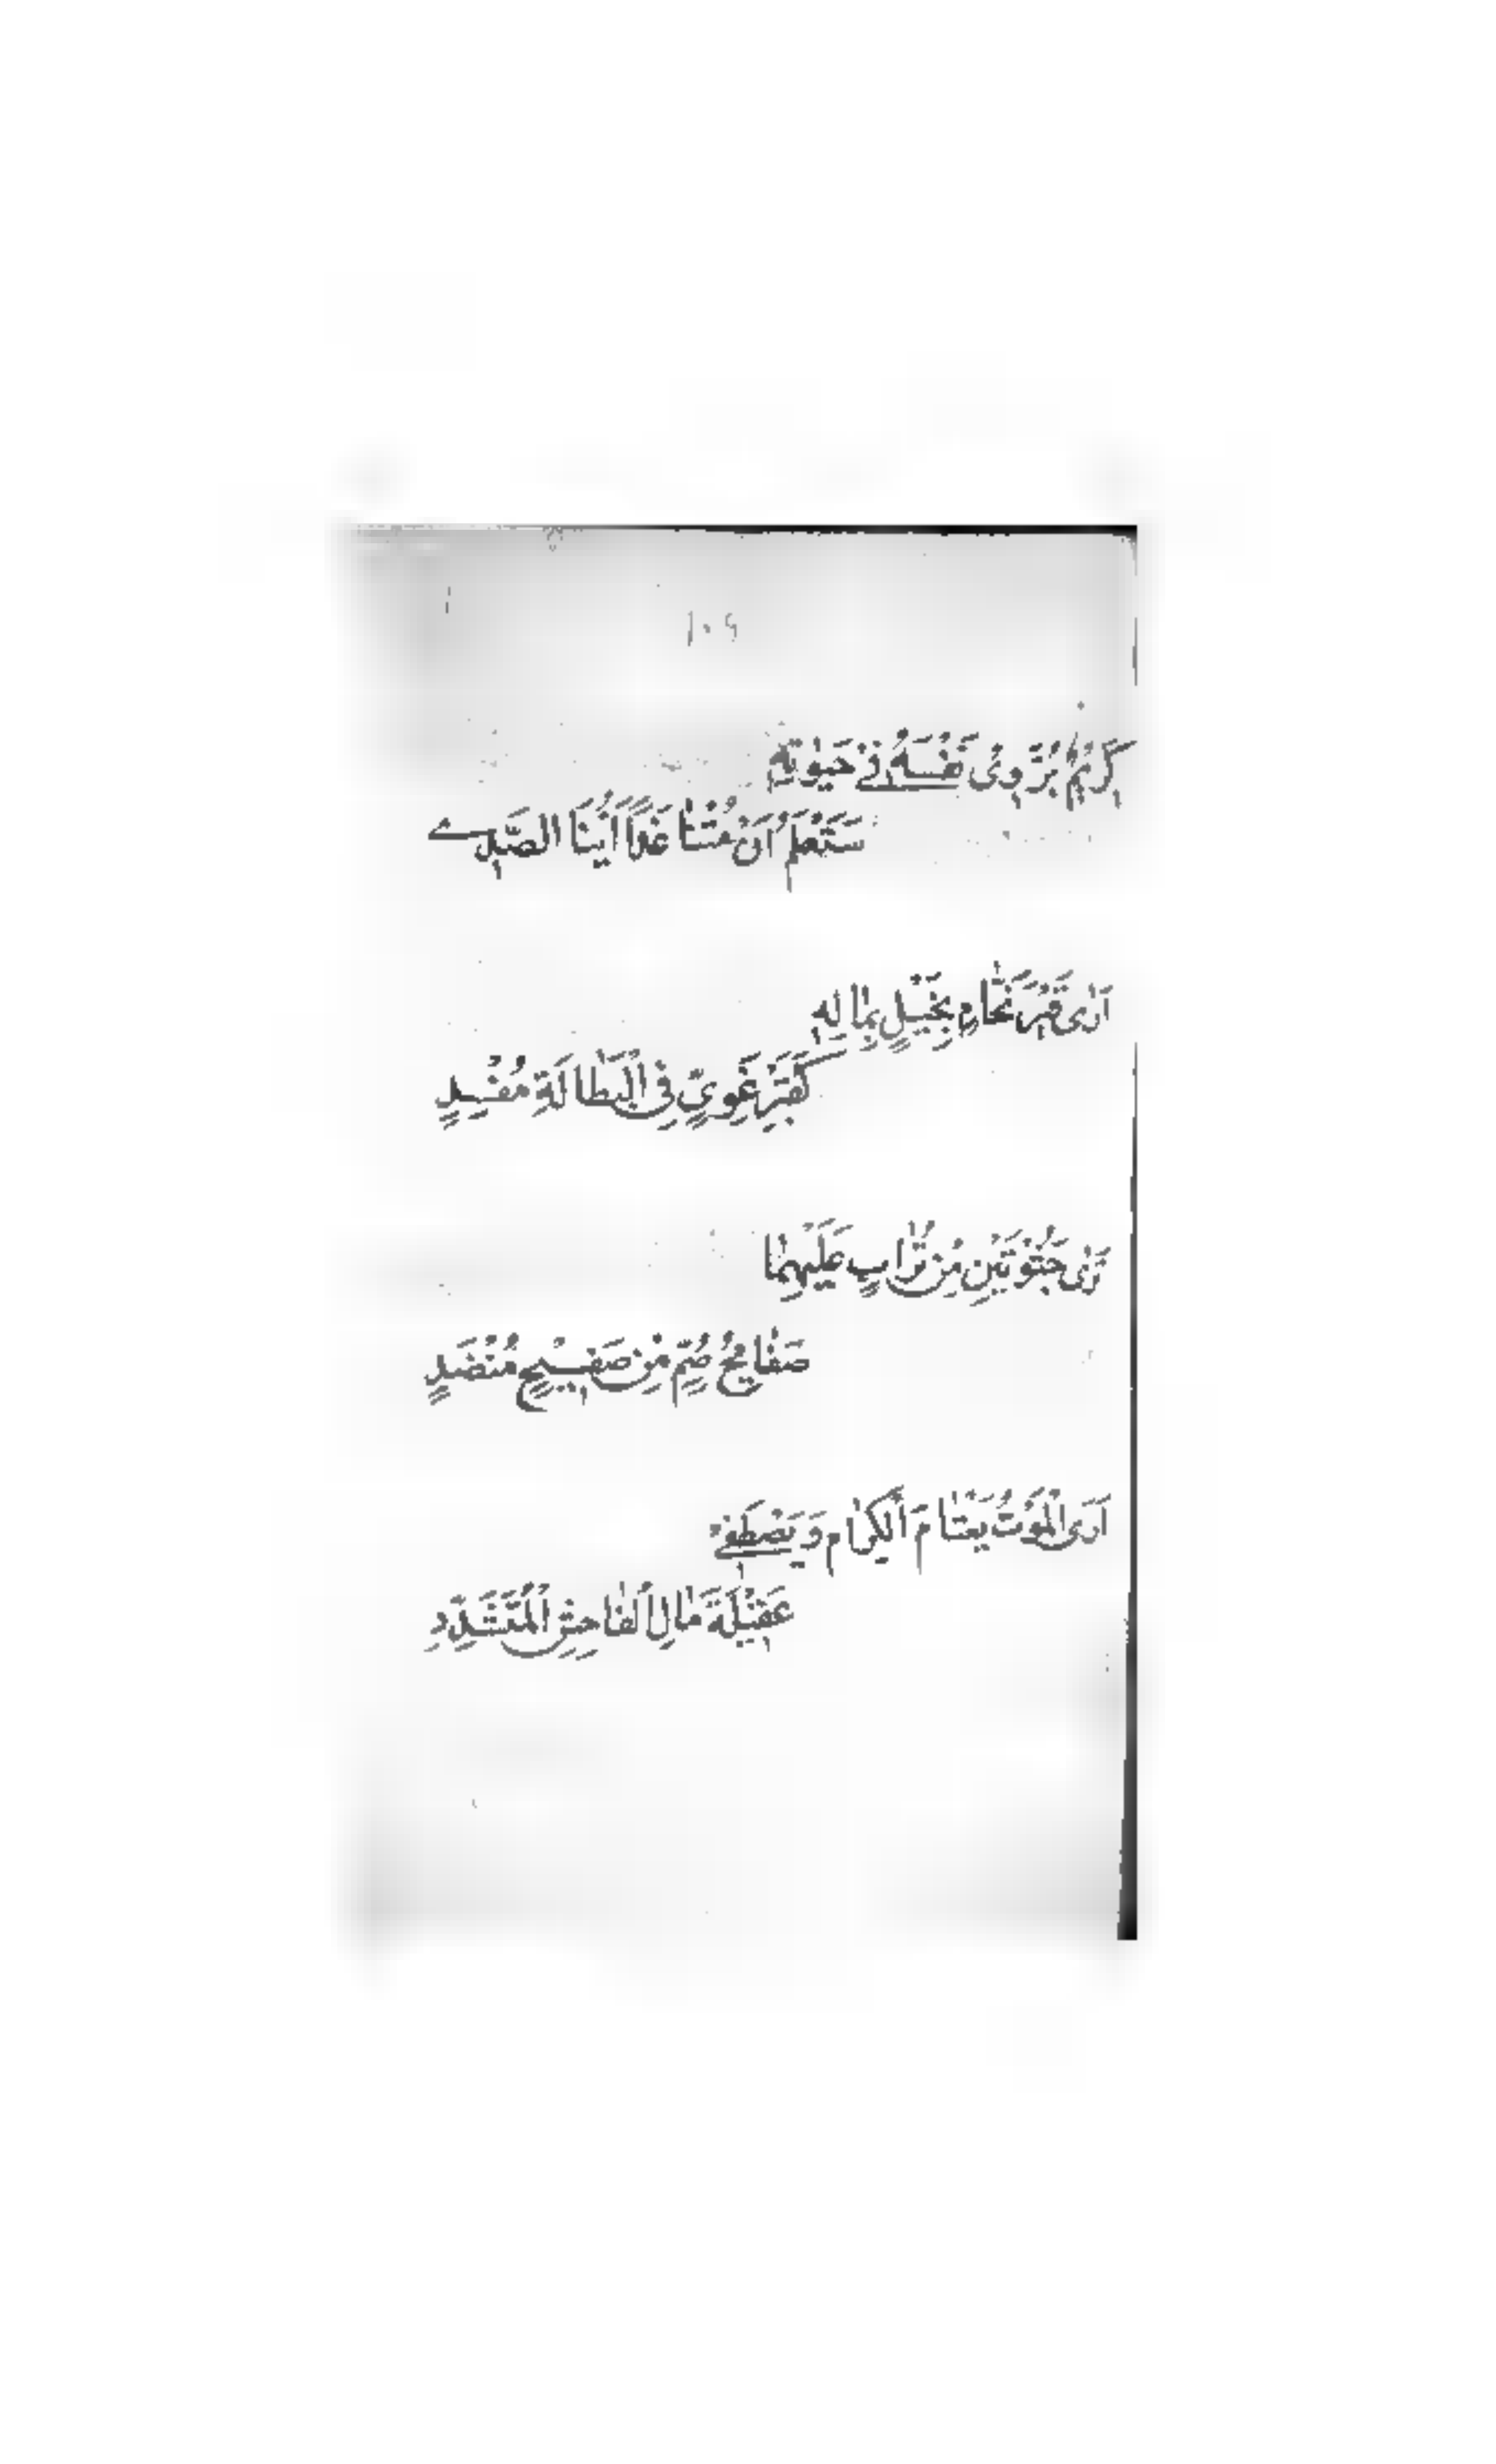 ۱۰۶
كَرِيْمٌ يُرَوِّىْ نَفْسَهُ فِیْ حَيٰوتِهٖ
سَتَعْلَمُ اِنْ مُتْنَا غَدًا اَيُّنَا الصَّدِیْ
اَرٰى قَبْرَ نَحَّامٍ بَخِيْلٍ بِمَالِهٖ
كَقَبْرِ غَوِيٍّ فِى الْبَطَالَةِ مُفْسِدٍ
تَرٰى جُثْوَتَيْنِ مِنْ تُرَابٍ عَلَيْهِمَا
صَفَائِحُ صُمٌّ مِنْ صَفِيْحٍ مُنَضَّدٍ
اَرَى الْمَوْتَ يَعْتَامُ الْكِرَامَ وَيَصْطَفِیْ
عَقِيْلَةَ مَالِ الْفَاحِشِ الْمُتَشَدِّدِ